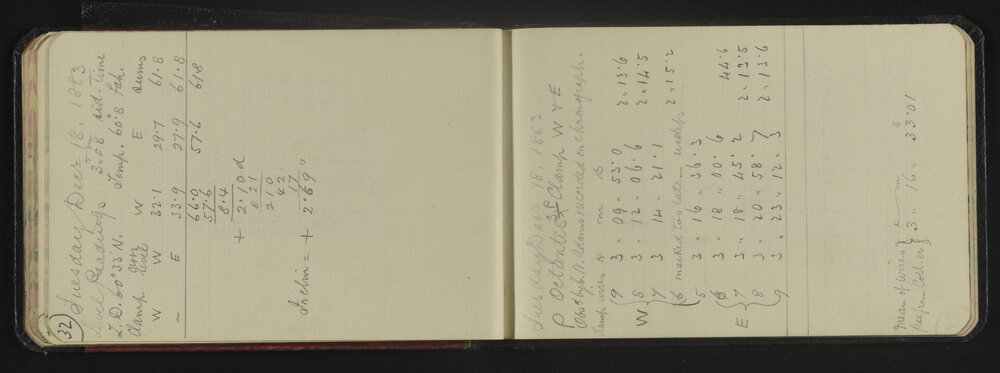 32) Tuesday Decr 18, 1883
Level Readings 3h.08m Sid. Time
Z.D. 60°33 N. Temp. 60°.8 Fah.
Clamp level W E Sums
W W 32.1 29.7 61.8
~ E 33.9 27.9 61.8
66.0 57.6 61.8
57.6
8.4
+ 2.10 d
8 21
2 10
42
17
Inclin = + 2.69"
Tuesday Decr 18. 1883
ρ Octantis S.P. Clamp W & E
Obsd by C. A. Adams & recorded on chronograph.
Clamp wires h m s
9 3 " 09 " 53.0 2 " 13.6
W 8 3 " 12 " 06.6 2 " 14.5
7 3 " 14 " 21.1
6 marked too late – 2 " 15.2
5 3 " 16 " 36.3
6 3 " 18 " 00.6 44.6
E 7 3 " 18 " 45.2 2 " 13.5
8 3 " 20 " 58.7 2 " 13.6
9 3 " 23 " 12.3
Mean of wires h m s
free from Coll. er 3 " 16 " 33.01